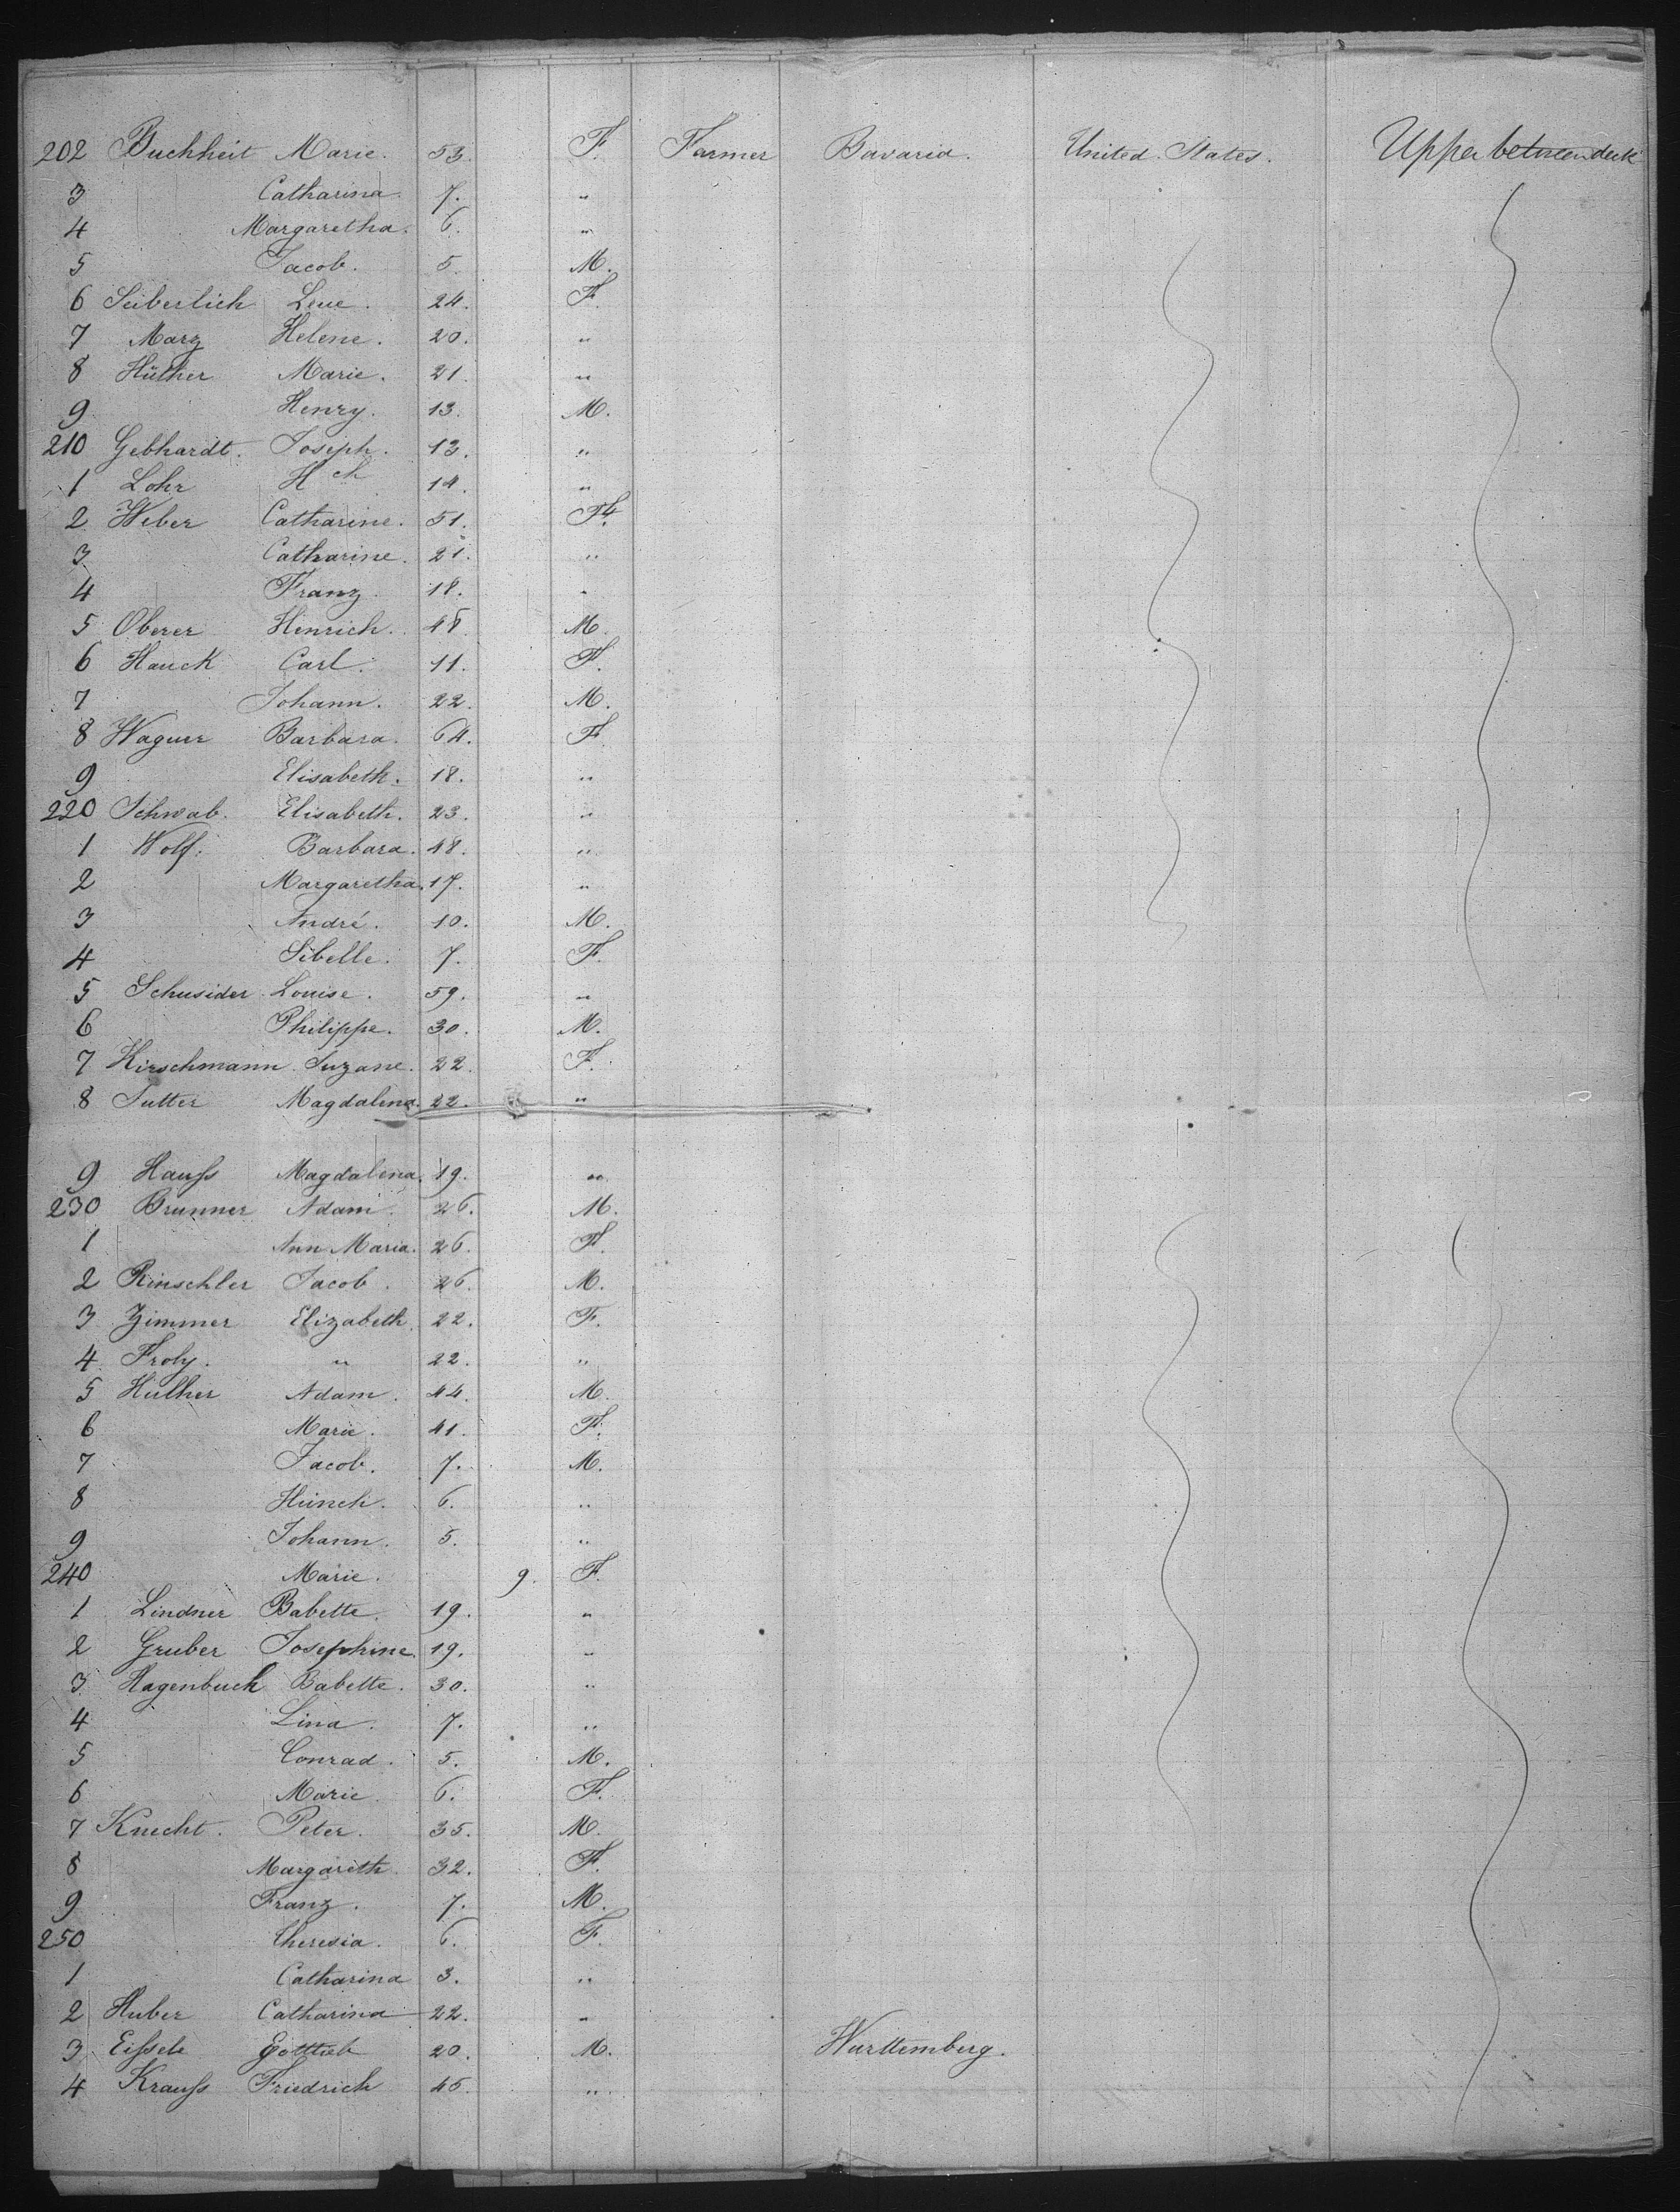 202 Buchheit Marie. 53. F. Farmer Bavaria. United States. Upper betweendeck
3 Catharina. 7. "
4 Margaretha. 6. "
5 Jacob. 5. M.
6 Seiberlich Lene. 24. F.
7 Marz Helene. 20. "
8 Hüther Marie. 21. "
9 Henry. 13. M.
210 Gebhardt. Joseph. 13. "
1 Lohr Hch 14. "
2 Weber Catharine. 51. F.
3 Catharine. 21. "
4 Franz. 18. "
5 Oberer Hinrich. 48. M.
6 Hauck Carl. 11. F.
7 Johann. 22. M.
8 Wagner Barbara. 64. F.
9 Elisabeth. 18. "
220 Schwab. Elisabeth. 23. "
1 Wolf. Barbara. 48. "
2 Margaretha. 17. "
3 André. 10. M.
4 Sibelle. 7. F.
5 Schusider Louise. 59. "
6 Philippe. 30. M.
7 Hirschmann Suzane. 22. F.
8 Sutter Magdalena. 22. "
9 Hauss Magdalena. 19. "
230 Brunner Adam. 26. M.
1 Ann Maria. 26. F.
2 Rinschler Jacob. 26. M.
3 Zimmer Elizabeth. 22. F.
4 Froly. " 22. "
5 Hüther Adam. 44. M.
6 Marie. 41. F.
7 Jacob. 7. M.
8 Hinrich. 6. "
9 Johann. 5. "
240 Marie. 9. F.
1 Lindner Babette. 19. "
2 Gruber Josephine. 19. "
3 Hagenbuch Babette. 30. "
4 Lina. 7. "
5 Conrad. 5. M.
6 Marie. 6. F.
7 Knecht. Peter. 35. M.
8 Margareth. 32. F.
9 Franz. 7. M.
250 Theresia. 6. F.
1 Catharina 3. "
2 Huber Catharina 22. "
3 Eissele Gottlieb 20. M. Wurttemberg.
4 Krauss Friedrich 45. "